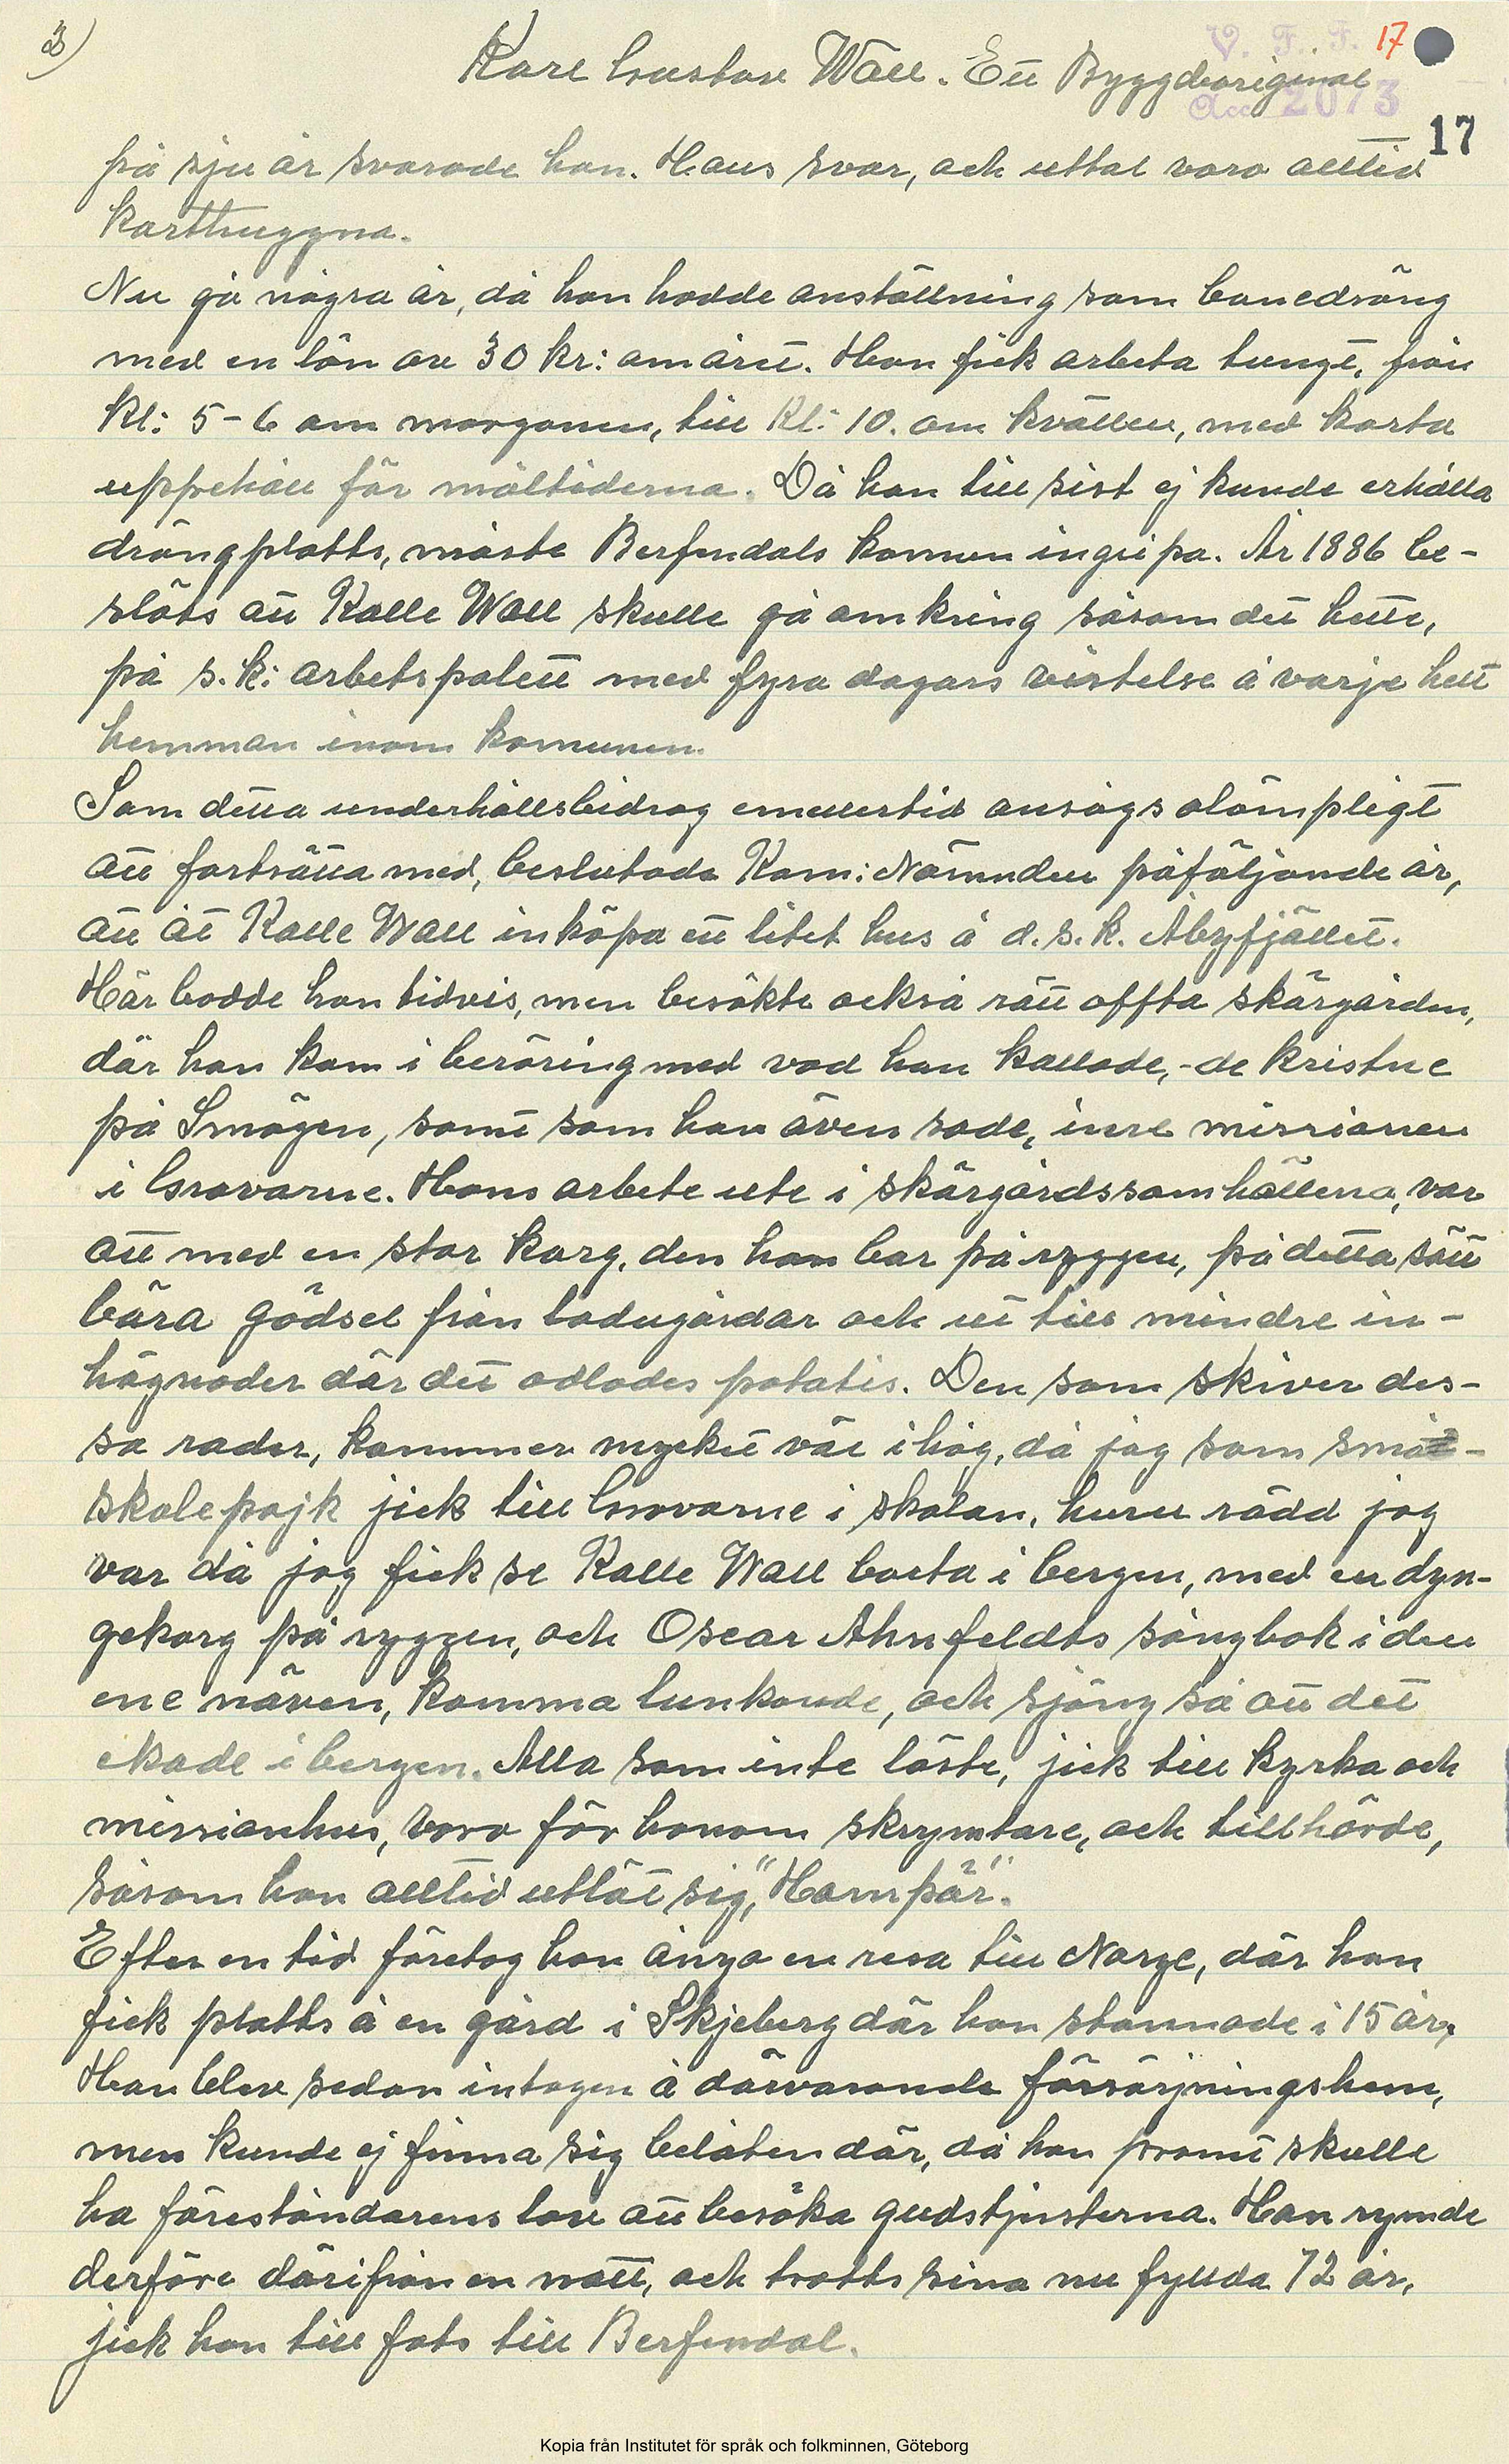 3)
V. F. F. 17
Karl Gustav Wall. Ett Bygdeoriginal
Acc 2073
17
på sju år svarade han. Hans svar, och uttal voro alltid
korthuggna.
Nu gå några år, då han hadde anställning som bonedräng
med en lön av 30 kr: om året. Han fick arbeta tungt, från
kl: 5-6 om morgonen, till kl: 10. om kvällen, med korta
uppehåll för måltiderna. Då han till sist ej kunde erhålla
drängplatts, måste Berfendals komun ingripa. År 1886 be-
slöts att Kalle Wall skulle gå omkring såsom det hette,
på s.k: arbetspalett med fyra dagars vistelse å varje helt
hemman inom komunen.
Som detta underhållsbidrag emellertid ansågs olämpligt
att fortsätta med, beslutade Kom: Nämnden påföljande år,
att åt Kalle Wall inköpa ett litet hus å d.s.k. Åbyfjället.
Här bodde han tidvis, men besökte också rätt offta skärgården,
där han kom i beröring med vad han kallade,-de kristne
på Smögen, samt som han även sade, inre missionen
i Gravarne. Hans arbete ute i skärgårdssamhällena, var
att med en stor korg, den han bar på ryggen, på detta sätt
bära gödsel från ladugårdar och ut till mindre in-
hägnader där det odlades potatis. Den som skiver des-
sa rader, kommer mycket väl ihåg, då jag som små-
skolepojk jick till Gravarne i skolan, huru rädd jag
var då jag fick se Kalle Wall borta i bergen, med en dyn-
gekorg på ryggen, och Oscar Ahnfeldts sångbok i den
ene näven, komma lunkande, och sjöng så att det
ekade i bergen. Alla som inte läste, jick till kyrka och
missionhus, voro för honom skrymtare, och tillhörde,
såsom han alltid utlät sig, "Hampär".
Efter en tid företog han ånyo en resa till Norge, där han
fick platts å en gård i Skjeberg där han stannade i 15 år.
Han blev sedan intagen å därvarande försörjningshem,
men kunde ej finna sig belåten där, då han promt skulle
ha föreståndarens lov att besöka gudstjensterna. Han rymde
derföre därifrån en natt, och trotts sina nu fyllda 72 år,
jick han till fots till Berfendal.
Kopia från Institutet för språk och folkminnen, Göteborg